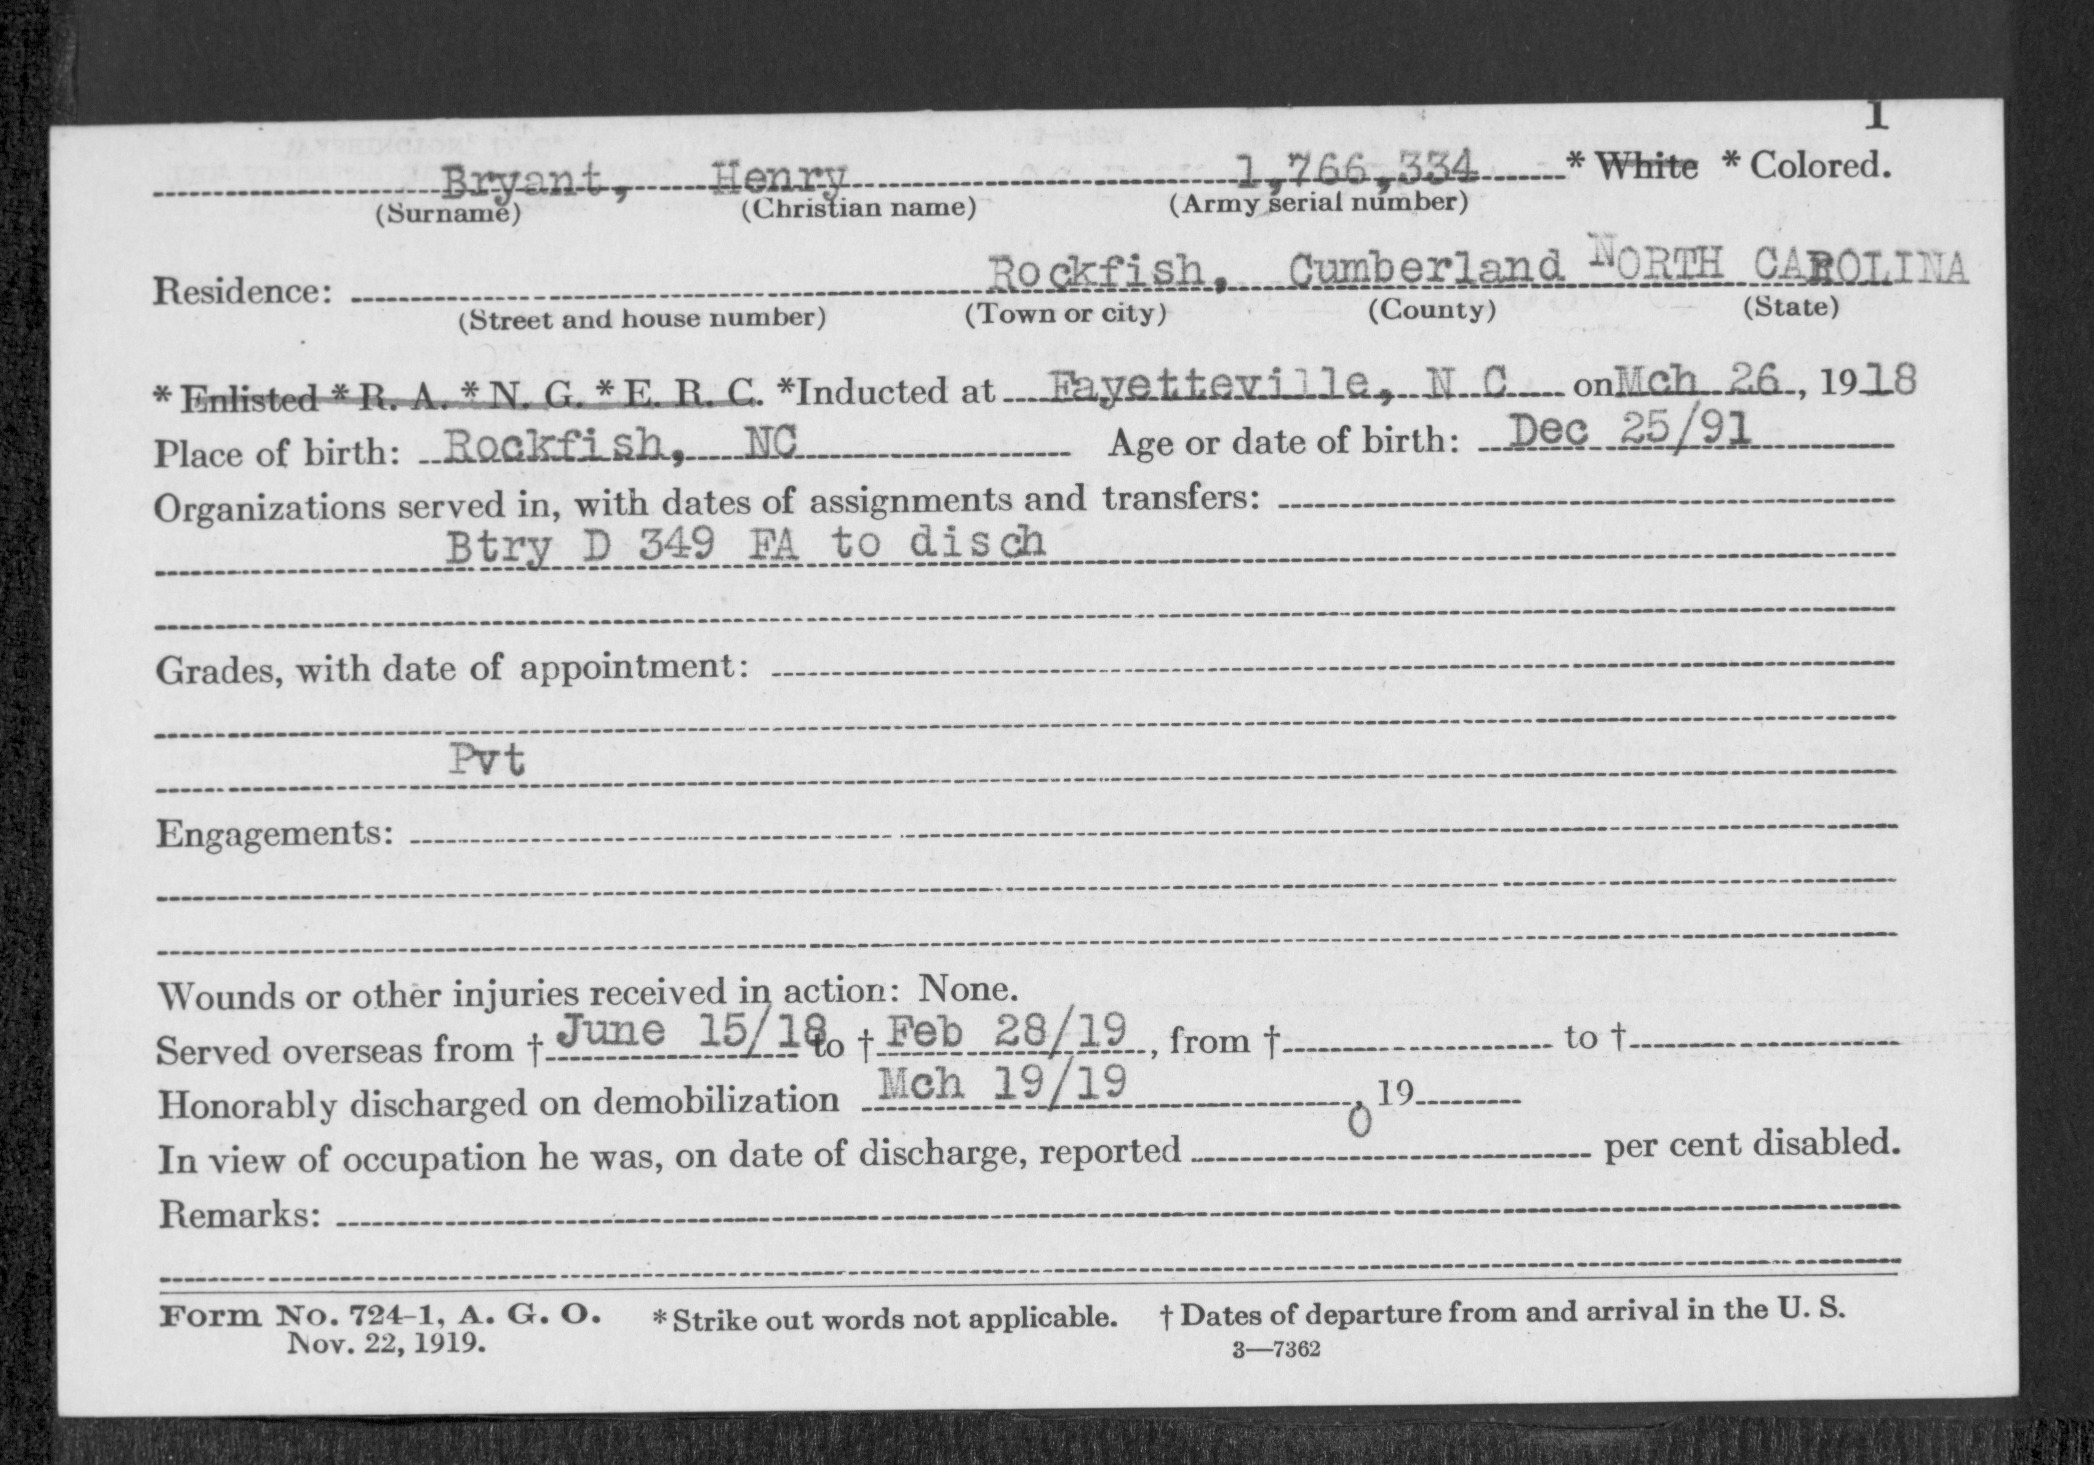 1
Bryant, Henry 1,766,334 * White * Colored.
(Surname) (Christian name) (Army serial number)
Residence: Rockfish, Cumberland NORTH CAROLINA
(Street and house number) (Town or city) (County) (State)
* Enlisted * R. A. * N. G. * E. R. C. *Inducted at Fayetteville, N C on Mch 26, 1918
Place of birth: Rockfish, NC Age or date of birth: Dec 25/91
Organizations served in, with dates of assignments and transfers:
Btry D 349 FA to disch
Grades, with date of appointment:
Pvt
Engagements:
Wounds or other injuries received in action: None.
Served overseas from † June 15/18 to † Feb 28/19, from † to †
Honorably discharged on demobilization Mch 19/19, 19
In view of occupation he was, on date of discharge, reported 0 per cent disabled.
Remarks:
Form No. 724-1, A. G. O. * Strike out words not applicable. † Dates of departure from and arrival in the U. S.
Nov. 22, 1919. 3—7362